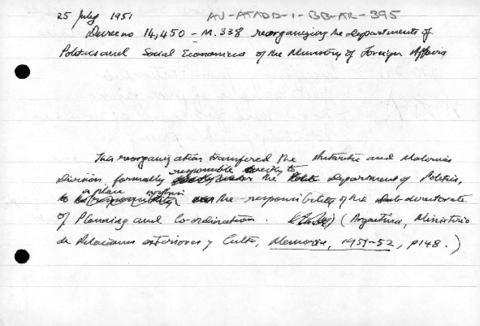 25 July 1951 AU-ATADD-1-BB-AR-395
Decree no 14,450 - M.338 reorganizing the Departments of
Politics and Social Economics of the Ministry of Foreign Affairs
This reorganization transferred the Antarctic and Malvinas
Division, formally responsible directly to the Department of Politics,
to a place within the responsibility of the Sub-directorate
of Planning and Co-ordination. (Argentina, Ministerio
de Relaciones exteriores y Culto, Memoria, 1951-52, p148.)